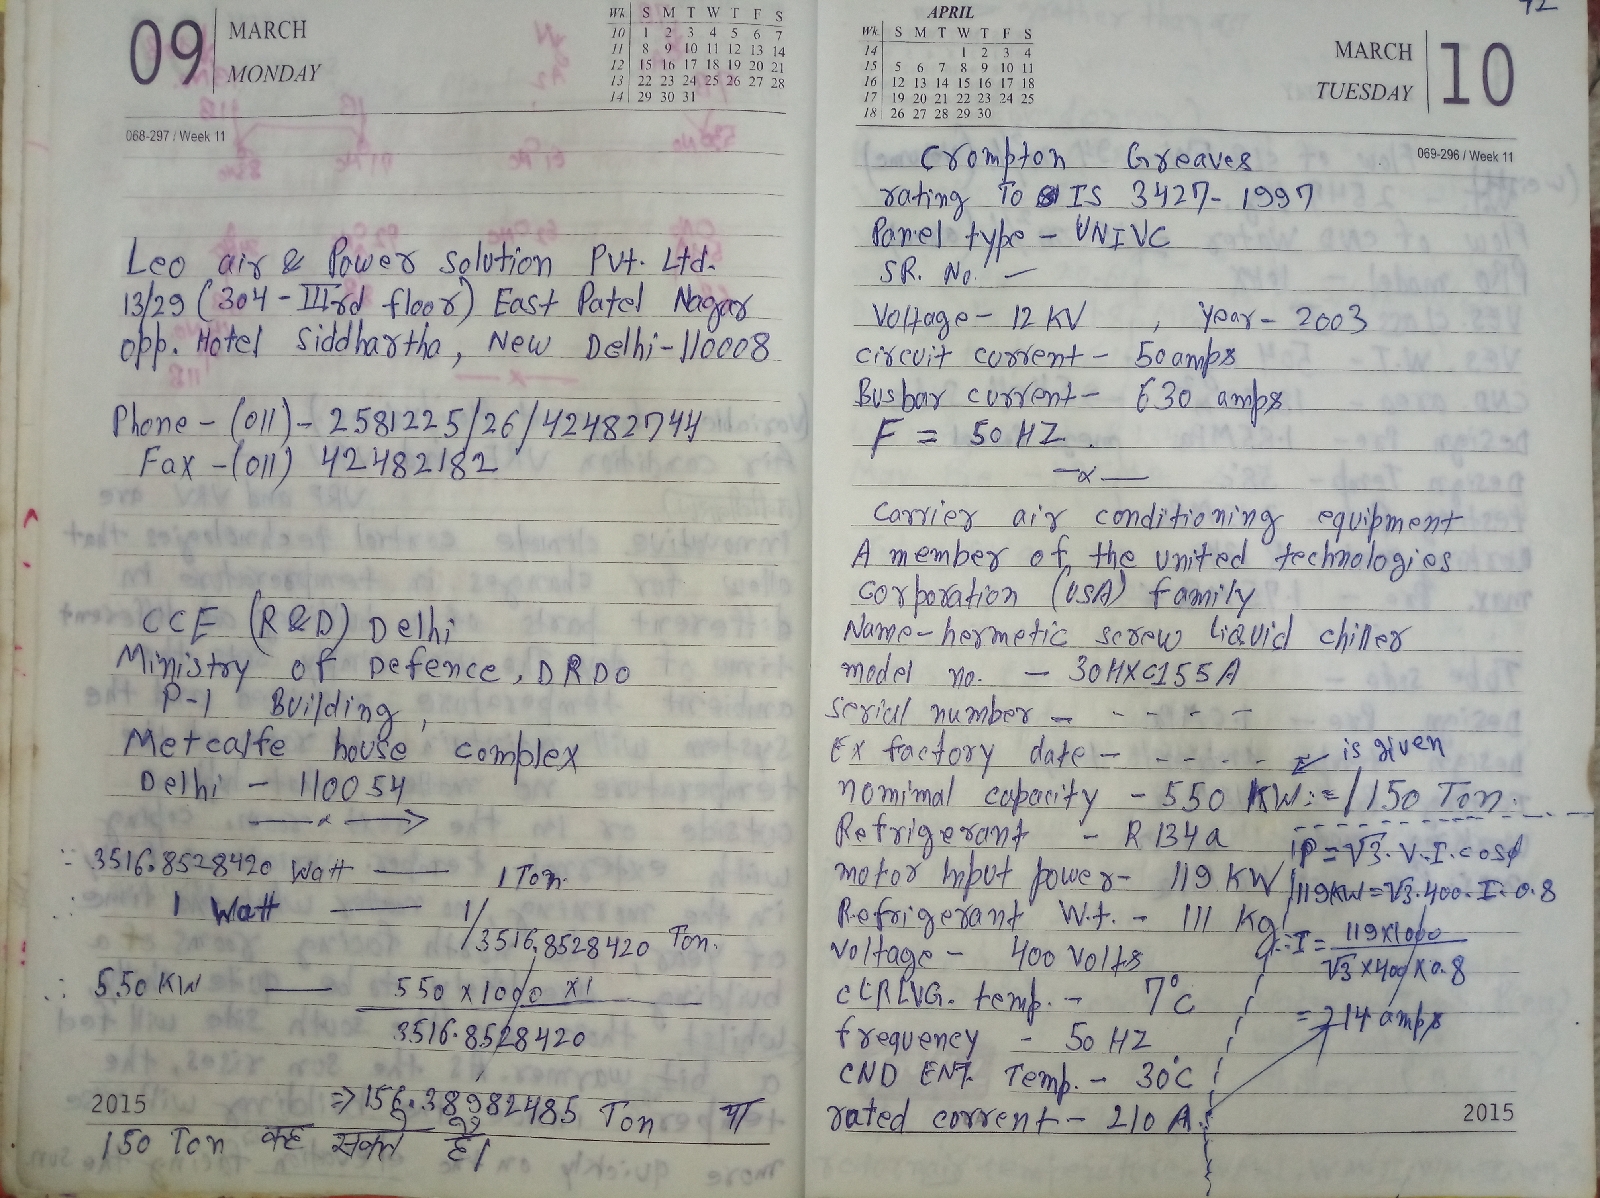 09
MARCH
MONDAY
Wk S M T W T F S
10 1 2 3 4 5 6 7
11 8 9 10 11 12 13 14
12 15 16 17 18 19 20 21
13 22 23 24 25 26 27 28
14 29 30 31
068-297 / Week 11
Leo air & Power solution Pvt. Ltd.
13/29 (304 - IIIrd floor) East Patel Nagar
opp. Hotel Siddhartha, New Delhi-110008
Phone - (011) - 2581225/26/42482744
Fax - (011) 42482182
CCE (R&D) Delhi
Ministry of Defence, DRDO
P-1 Building,
Metcalfe house complex
Delhi - 110054
—x—>
∵ 3516.8528420 Watt — 1 Ton.
∴ 1 Watt — 1/3516.8528420 Ton.
∴ 550 KW — 550 x 1000 x 1
3516.8528420
=> 156.38982485 Ton या
2015
150 Ton कह सकते है।
APRIL
Wk S M T W T F S
14 1 2 3 4
15 5 6 7 8 9 10 11
16 12 13 14 15 16 17 18
17 19 20 21 22 23 24 25
18 26 27 28 29 30
MARCH
TUESDAY
10
069-296 / Week 11
Crompton Greaves
rating To IS 3427-1997
Panel type - UNIVC
SR. No. —
Voltage - 12 KV , Year - 2003
circuit current - 50 amps
Busbar current - 630 amps
F = 50 HZ.
—x—
Carrier air conditioning equipment
A member of the united technologies
Corporation (USA) family
Name - hermetic screw liquid chiller
model no. - 30HXC155A
serial number - - - - -
Ex factory date - - - - - is given
nominal capacity - 550 KW := 150 Ton.
Refrigerant - R 134a
P = √3.V.I.cosϕ
motor input power - 119 KW
119KW = √3.400.I.0.8
Refrigerant W.t. - 111 Kg
∴ I = 119x1000
√3 x 400 x 0.8
voltage - 400 Volts
CLRLVG. temp. - 7°C
= 214 amps
frequency - 50 HZ
CND ENT. Temp. - 30°C
rated current - 210 A.
2015